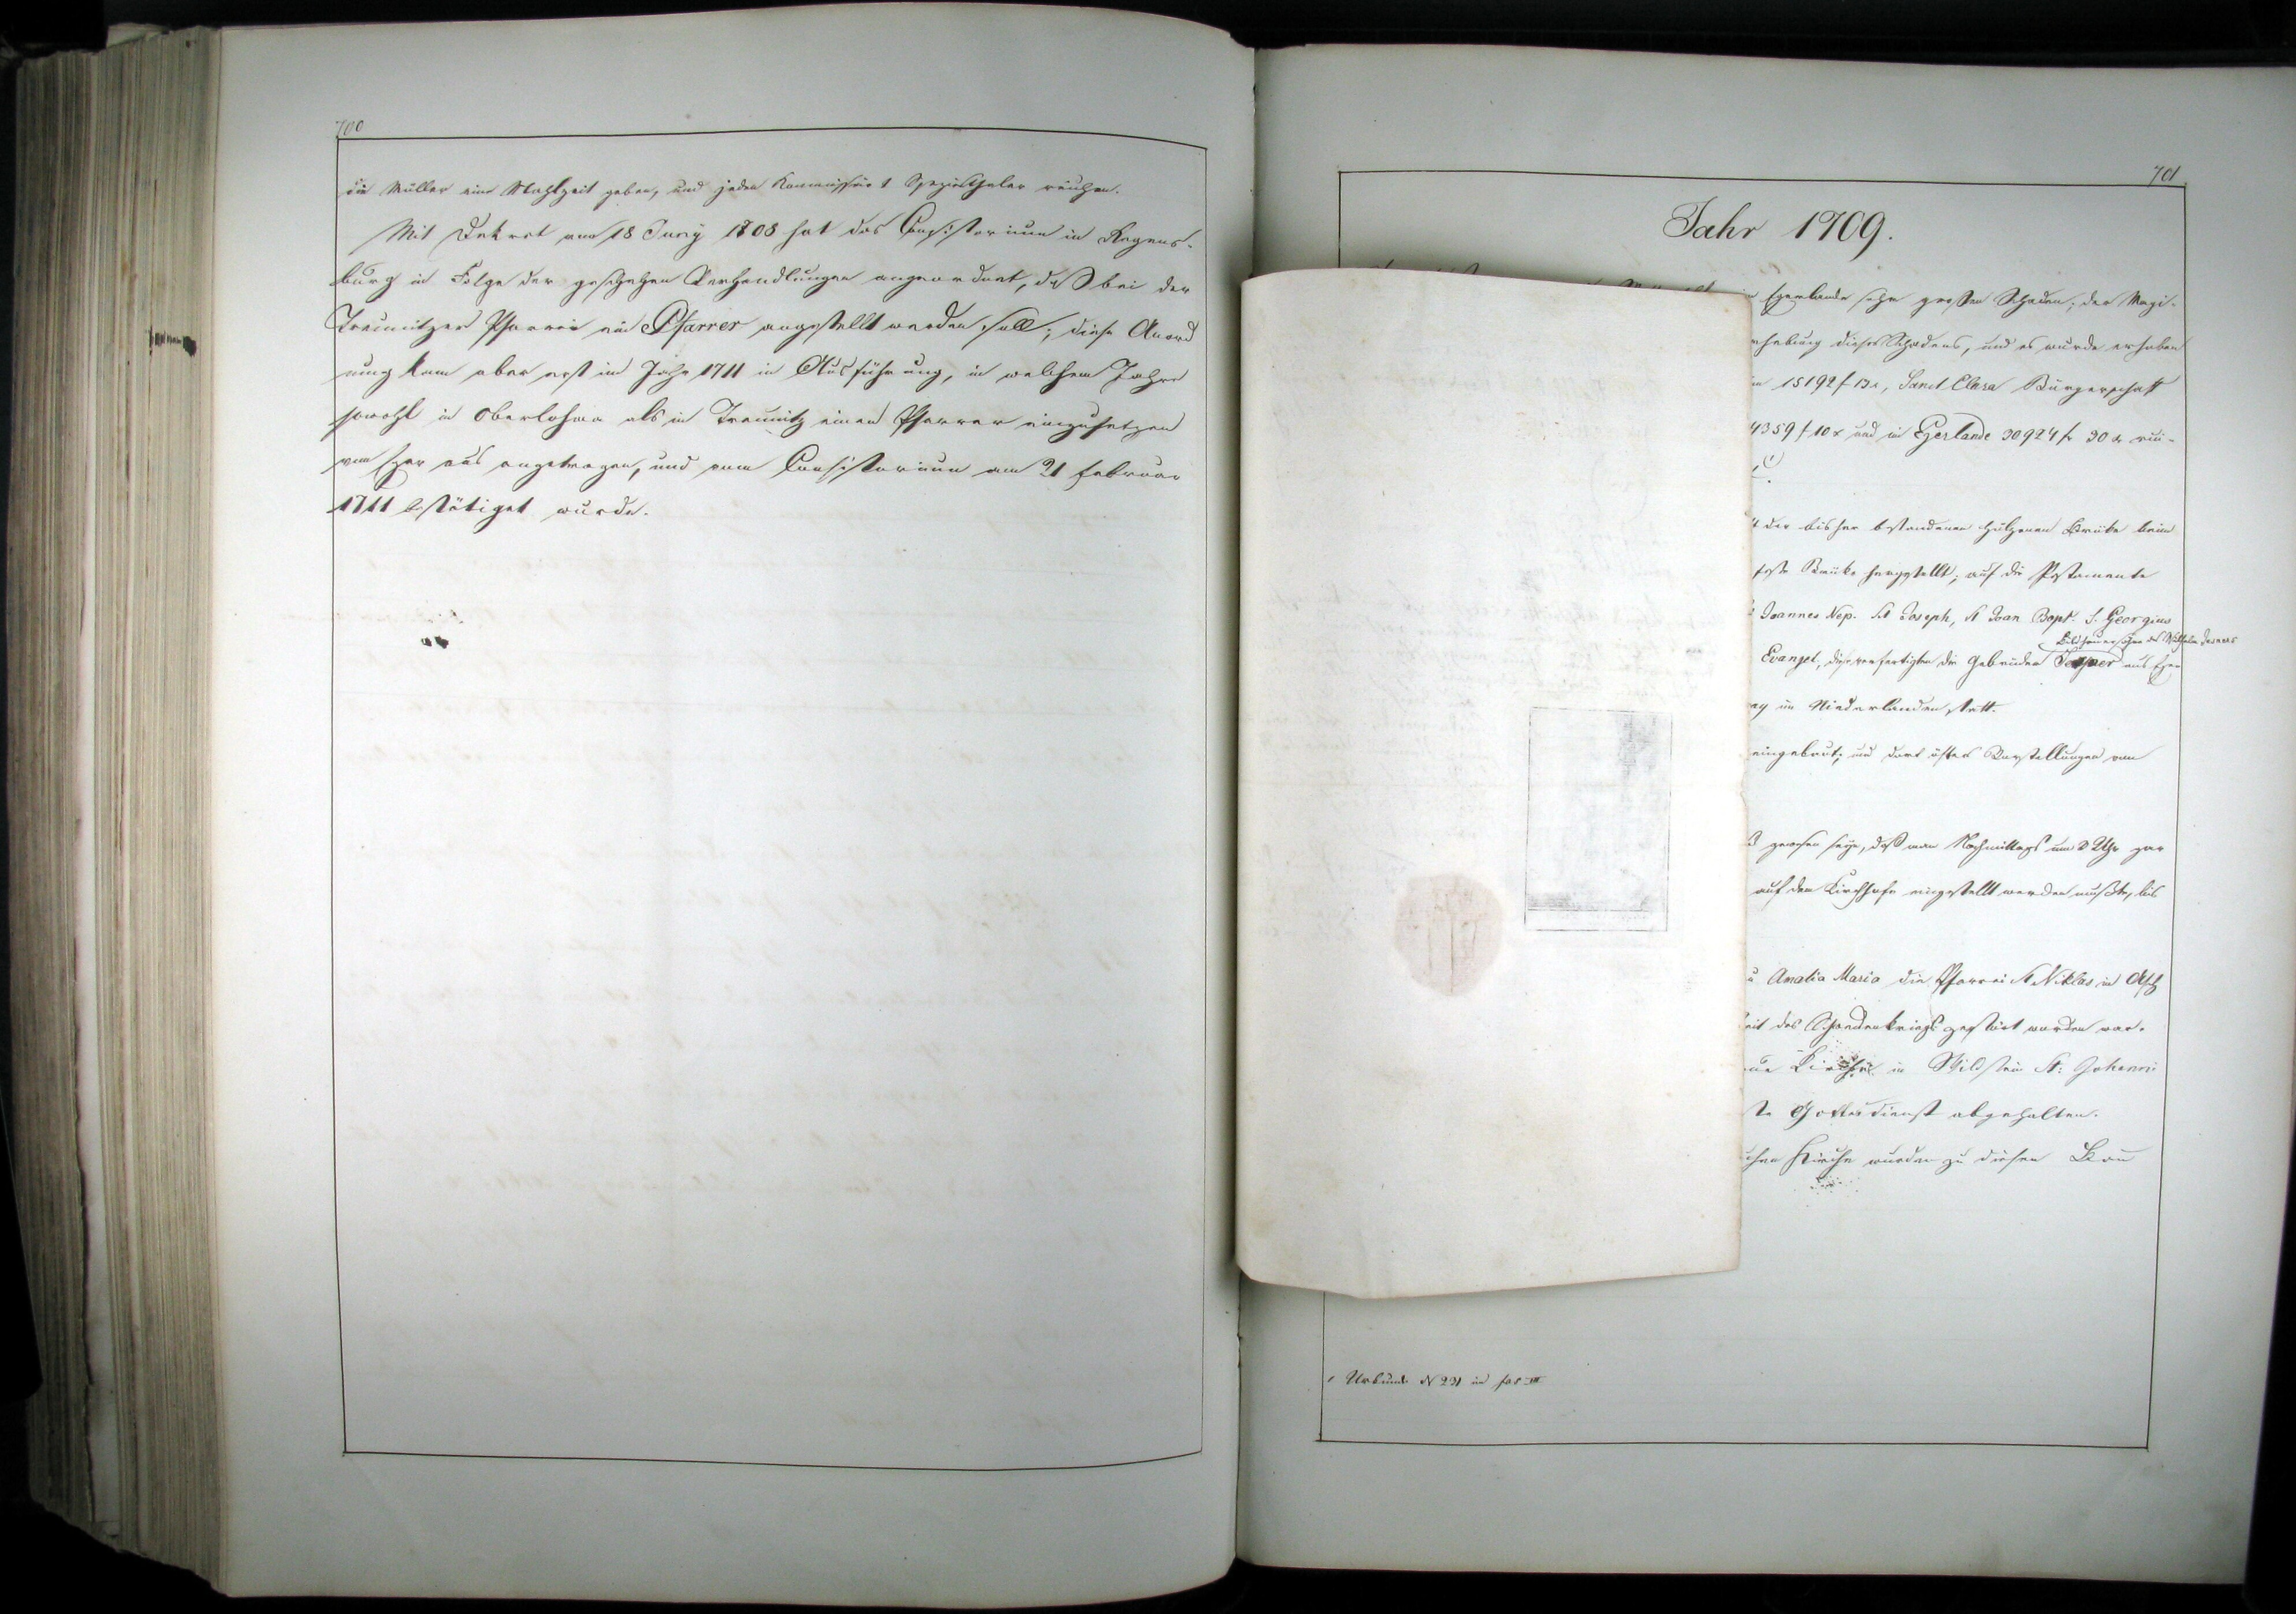 700
die Müller eine Mahlzeit geben, und jeden Kommissär 1 Speziesthaler reichen.
Mit Dekret vom 18 Juny 1708 hat das Consistorium in Regens-
burg in Folge der geschehen Verhandlungen angeordnet, daß bei der
Treunitzer Pfarrei ein Pfarrer angestellt werden soll; diese Anord
nung kam aber erst im Jahr 1711 in Ausführung, in welchem Jahre
sowohl in Oberlohma als in Treunitz einen Pfarrer einzusetzen
von Eger aus angetragen, und vom Consistorium am 21 Februar
1711 bestätiget wurde.
701
Jahr 1709.
Egerlande sehr großen Schaden, der Magi-
rhebung dieses Schadens, und es wurde erhoben
15192 f 13x, Sanct Clara Bürgerschaft
4359 f 10x und im Egerlande 30924 f 30x
der bisher bestandenen hölzenen Brücke beim
Brücke hergestellt; auf die Postamente
Joannes Nep. St Joseph, St Joan Bapt. S. Georgius
Bildhauer Söhne des Wilhelm
Evangel, diese verfertigten die Gebrüder aus Eger
im Niederlanden statt.
und dort öfters Vorstellungen von
gewesen seye, daß man Nachmittags um 3 Uhr gar
auf dem Kirchhofe eingestellt werden mußte, bis
Amalia Maria die Pfarrei St Niklas in Asch
eit des Schwedenkriegs gestört worden war.
Kirche in Wildstein St: Johanni
te Gottesdienst abgehalten.
chen Kirche wurden zu diesen Bau
1 Urkunde N 231 im fas XII